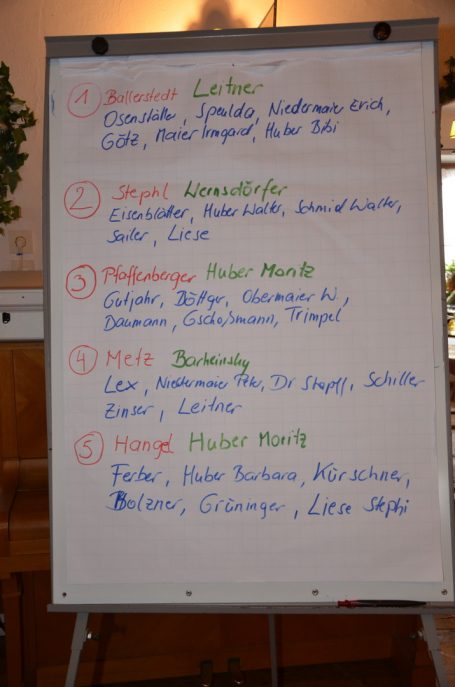 1 Ballerstedt Leitner
Osenstätter, Speulda, Niedermaier Erich,
Götz, Maier Irmgard, Huber Bibi
2 Stephl Wernsdörfer
Eisenblätter, Huber Walter, Schmid Walter,
Sailer, Liese
3 Pfaffenberger Huber Moritz
Gutjahr, Böttger, Obermaier W.,
Daumann, Gschoßmann, Trimpel
4 Metz
Lex, Niedermaier Peter, Dr Stapff, Schiller
Zinser, Leitner
5 Hangel Huber Moritz
Ferber, Huber Barbara, Kürschner,
Bolzner, Grüninger, Liese Stephi